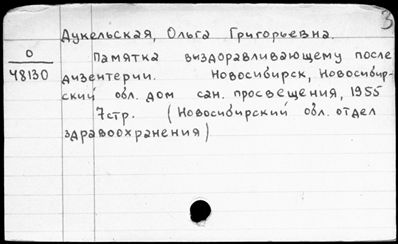 3
Дукельская, Ольга Григорьевна.
О
48130
Памятка выздоравливающему после
дизентерии. Новосибирск, Новосибир-
ский обл. дом сан. просвещения, 1955
7стр. (Новосибирский обл. отдел
здравоохранения)